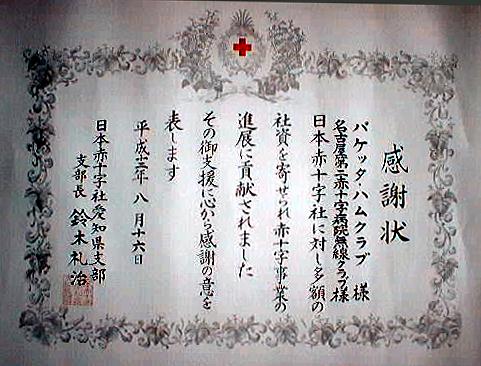 感謝状
パケッタ・ハムクラブ 様
名古屋第二赤十字病院無線クラブ様
日本赤十字社に対し多額の
社資を寄せられ赤十字事業の
進展に貢献されました
その御支援に心から感謝の意を
表します
平成十三年 八月十六日
日本赤十字社愛知県支部
支部長 鈴木礼治